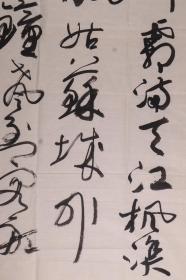 霜滿天江楓漁
姑蘇城外
鐘聲到客船